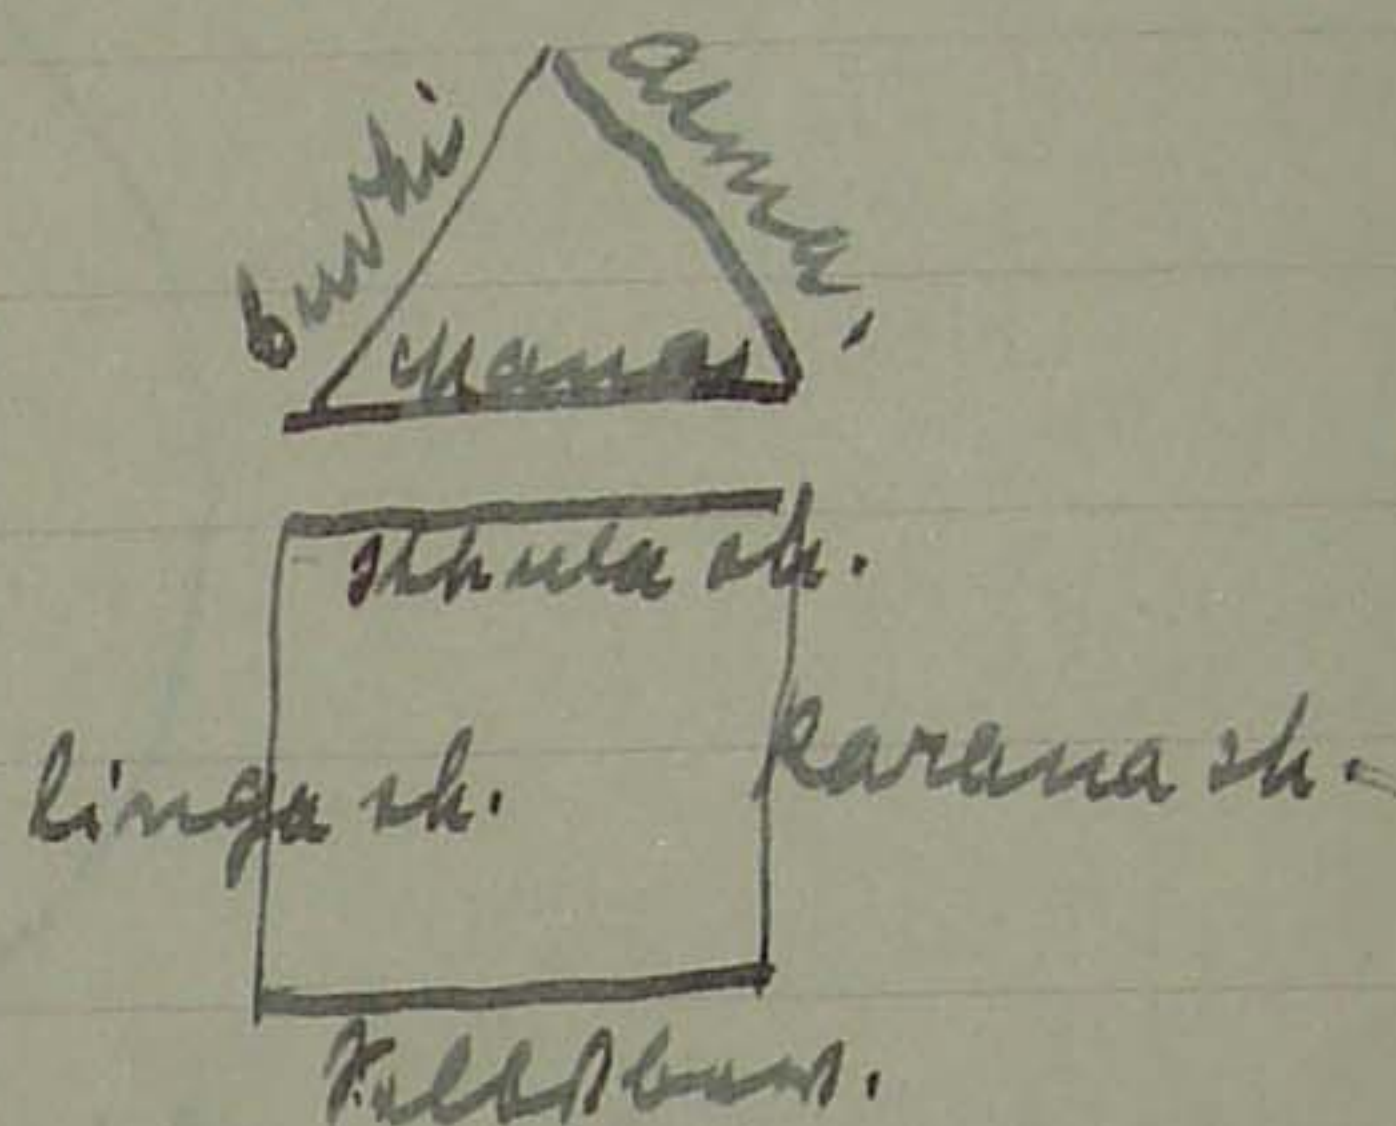 budhi
atma.
Manas
sthula sh.
linga sh.
karana sh.
Selbstbew.